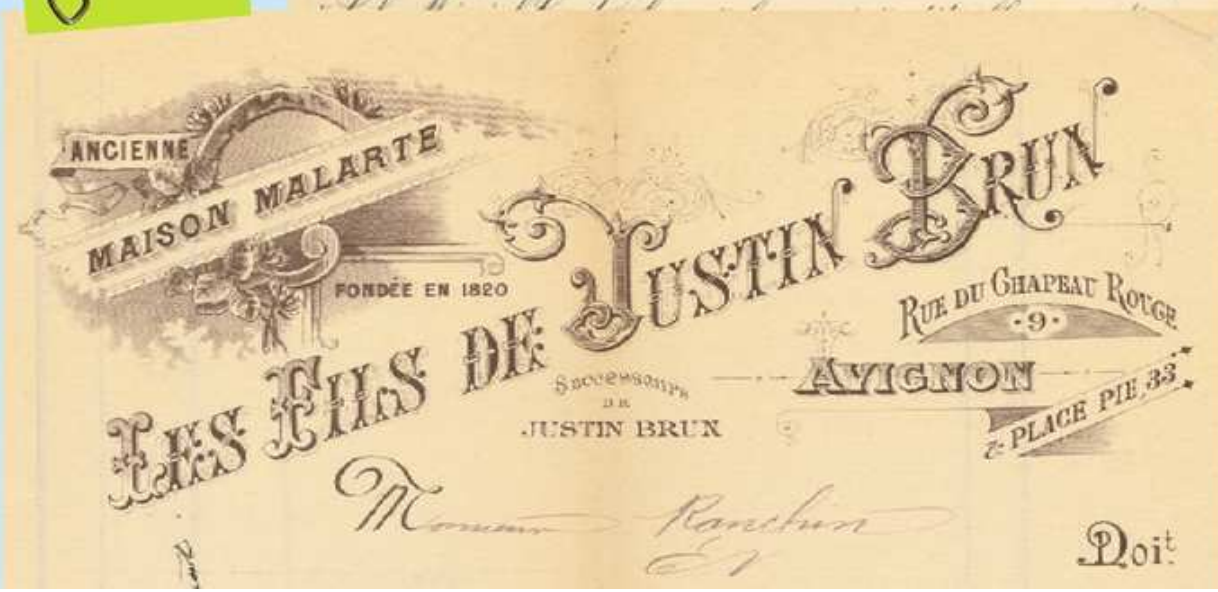 ANCIENNE
MAISON MALARTE
FONDÉE EN 1820
LES FILS DE JUSTIN BRUN
Successeurs
DE
JUSTIN BRUN
RUE DU CHAPEAU ROUGE
-9-
AVIGNON
& PLACE PIE, 33
Monsieur Ranchin
Doit